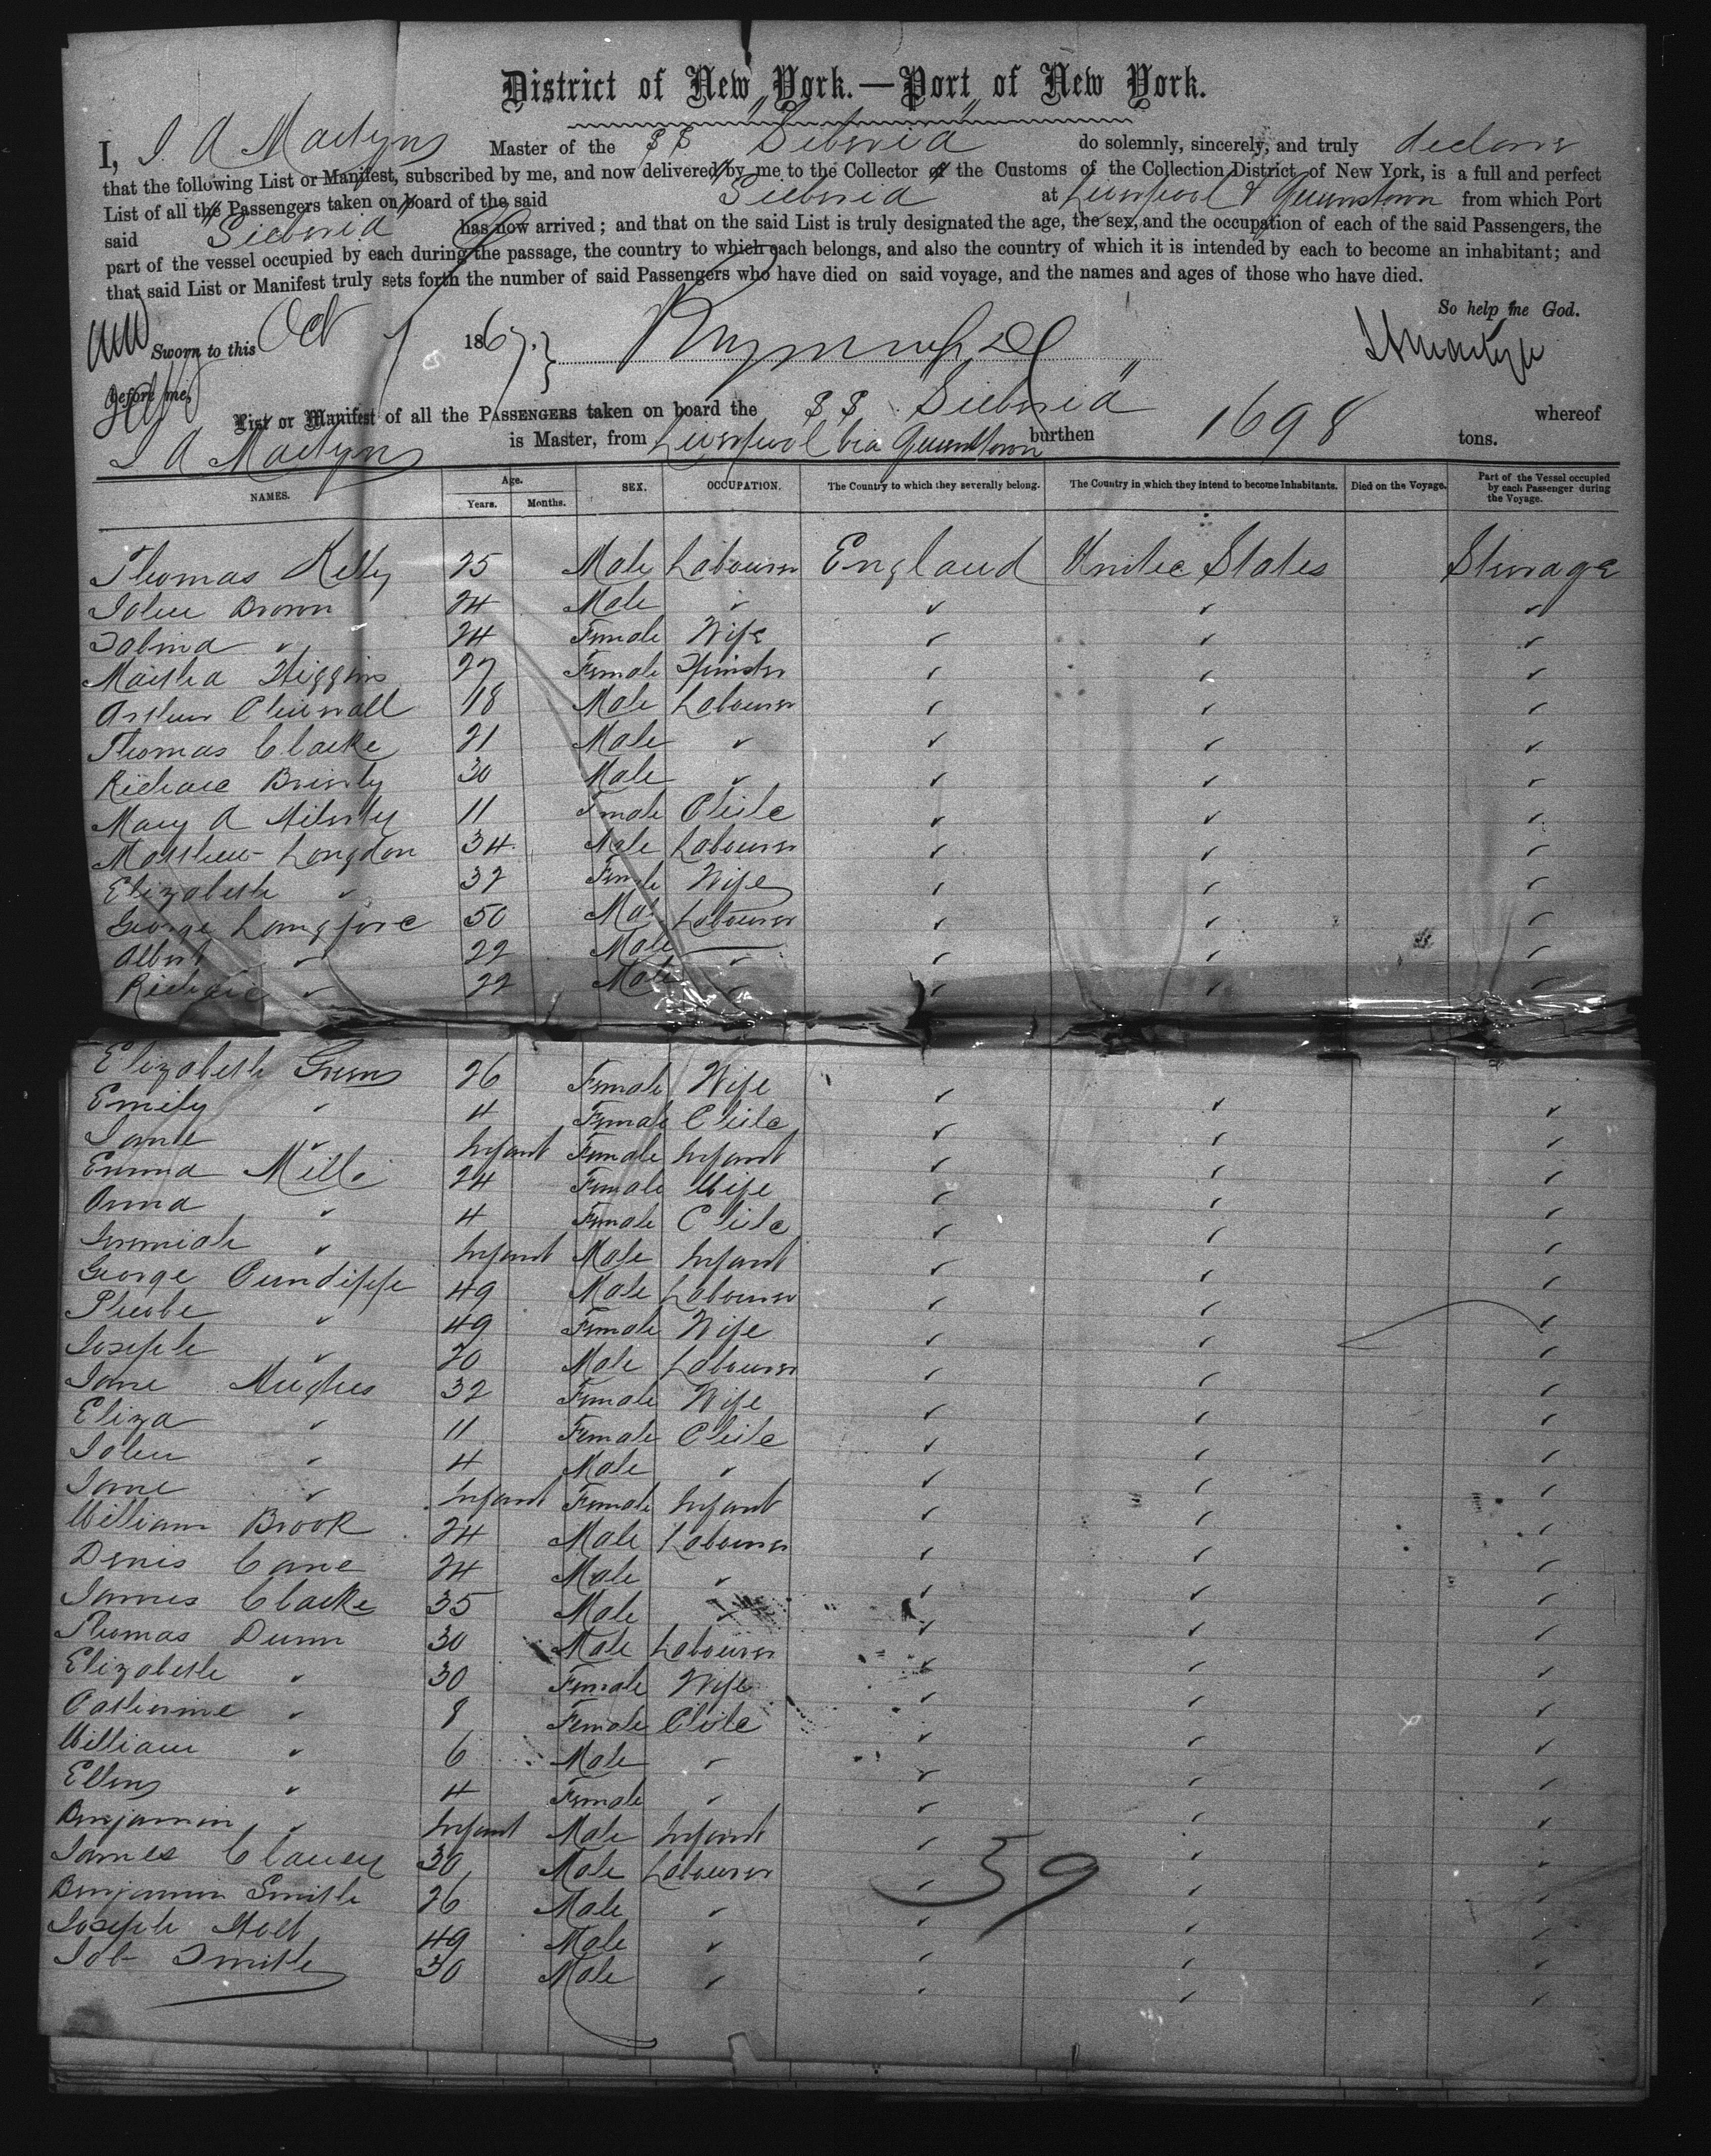 District of New York.—Port of New York.
I, J. A Martyn Master of the SS "Siberia" do solemnly, sincerely, and truly declare
that the following List or Manifest, subscribed by me, and now delivered by me to the Collector of the Customs of the Collection District of New York, is a full and perfect
List of all the Passengers taken on board of the said "Sieberia" at Liverpool & Queenstown from which Port
said "Sieberia" has now arrived; and that on the said List is truly designated the age, the sex, and the occupation of each of the said Passengers, the
part of the vessel occupied by each during the passage, the country to which each belongs, and also the country of which it is intended by each to become an inhabitant; and
that said List or Manifest truly sets forth the number of said Passengers who have died on said voyage, and the names and ages of those who have died.
So help me God.
Sworn to this Oct 7 1867.
before me,
List or Manifest of all the PASSENGERS taken on board the SS "Sieberia" whereof
J A Martyn is Master, from Liverpool via Queenstown burthen 1698 tons.
NAMES. Age. Years. Months. SEX. OCCUPATION. The Country to which they severally belong. The Country in which they intend to become Inhabitants. Died on the Voyage. Part of the Vessel occupied by each Passenger during the Voyage.
Thomas Kelly 25 Male Labourer England United States Steerage
John Brown 24 Male "
Salina " 24 Female Wife
Martha Higgins 27 Female Spinster
Arthur 18 Male Labourer
Thomas Clarke 21 Male "
Richard Brierly 30 Male "
Mary A 11 Female Child
Matthew Longdon 34 Male Labourer
Elizabeth " 32 Female Wife
George Longford 50 Male Labourer
Albert " 22 Male "
Richard " 22 Male "
Elizabeth Green 26 Female Wife
Emily " 4 Female Child
Jane " Infant Female Infant
Emma Mills 24 Female Wife
Anna " 4 Female Child
Jeremiah " Infant Male Infant
George Cundiffe 49 Male Labourer
Phoebe " 49 Female Wife
Joseph " 20 Male Labourer
Jane Hughes 32 Female Wife
Eliza " 11 Female Child
John " 4 Male "
Jane " Infant Female Infant
William Brook 24 Male Labourer
Denis Cane 24 Male "
James Clarke 35 Male "
Thomas Dunn 30 Male Labourer
Elizabeth " 30 Female Wife
Catherine " 8 Female Child
William " 6 Male "
Ellen " 4 Female "
Benjamin " Infant Male Infant
James Clancy 30 Male Labourer
Benjamin Smith 26 Male "
Joseph Holt 49 Male "
Job Smith 30 Male "
39